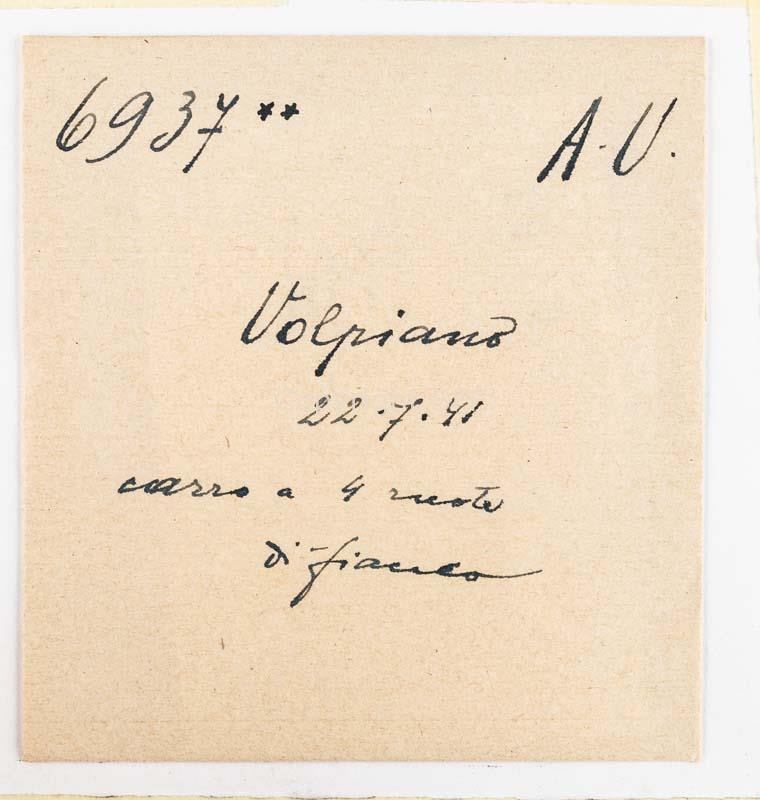 6937** A.V.
Volpiano
22.7.41
carro a 4 ruote
di fianco